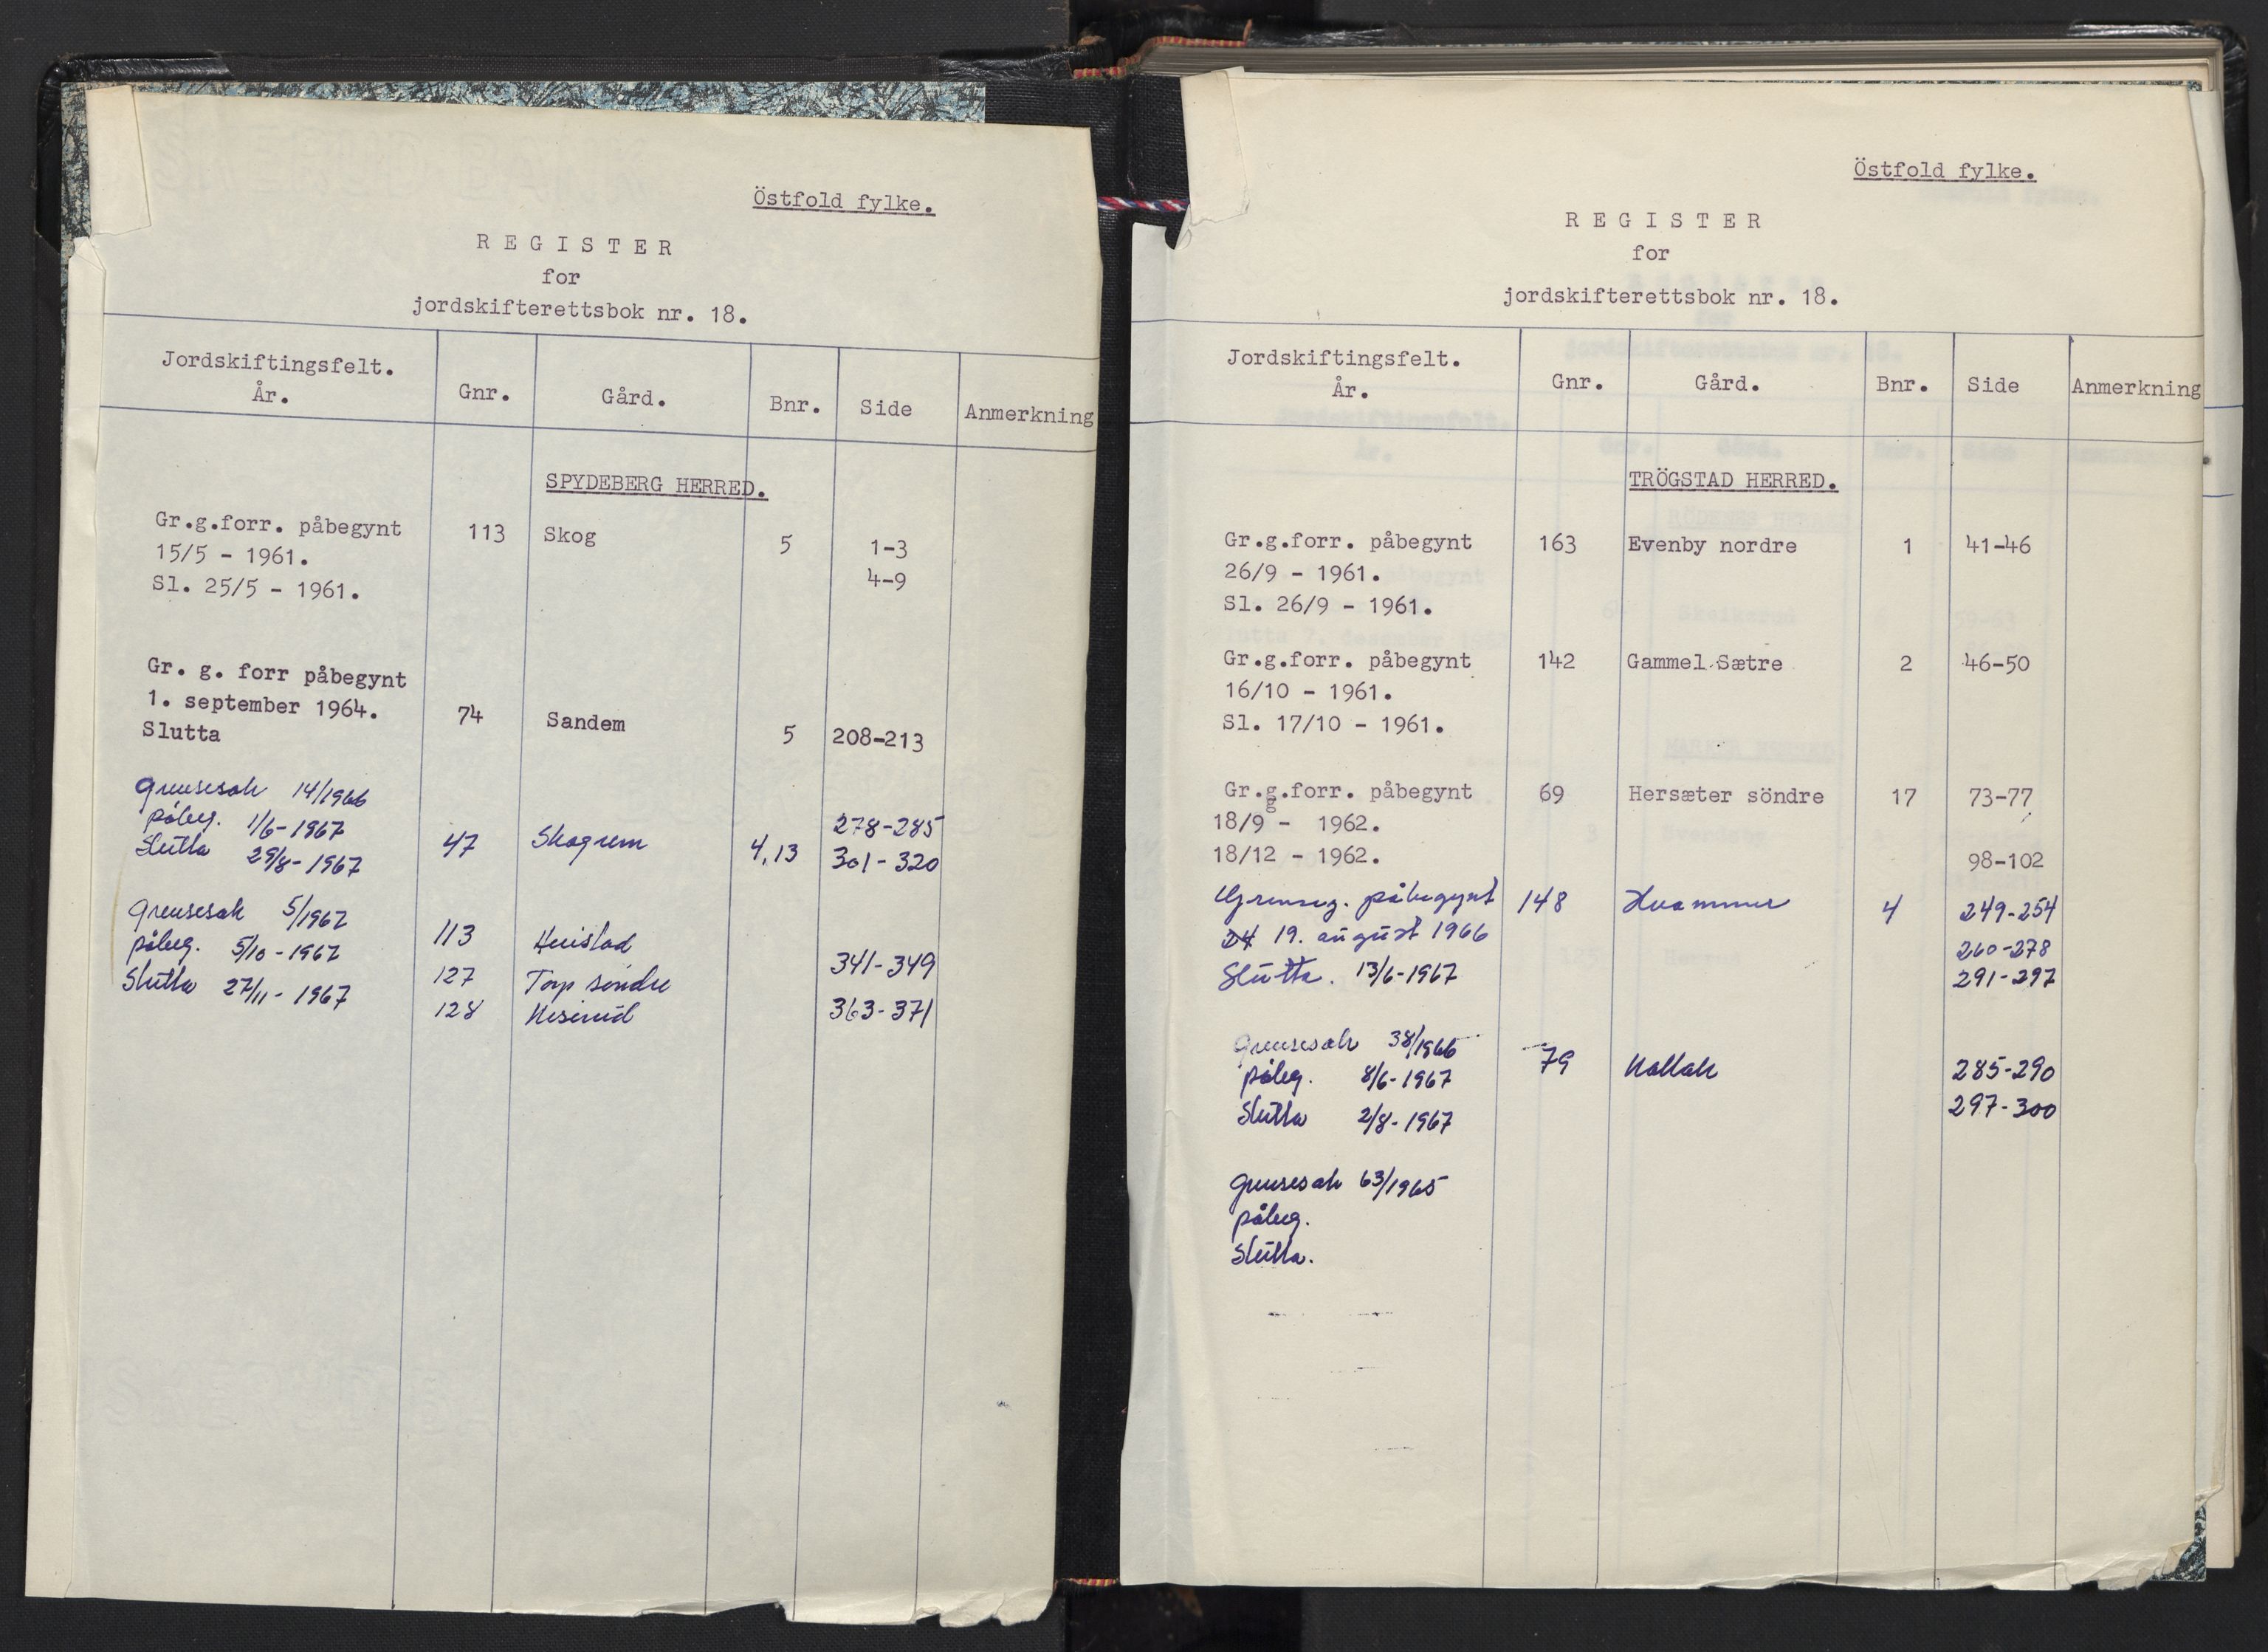 Östfold fylke.
REGISTER
for
jordskifterettsbok nr. 18.
Jordskiftingsfelt. År. Gnr. Gård. Bnr. Side Anmerkning
SPYDEBERG HERRED.
Gr.g.forr. påbegynt 113 Skog 5 1-3
15/5 - 1961. 4-9
Sl. 25/5 - 1961.
Gr. g. forr påbegynt
1. september 1964. 74 Sandem 5 208-213
Slutta
Grensesak 14/1966
påbeg. 1/6-1967 278-285
Slutta 29/8-1967 47 Skogrem 4,13 301-320
Grensesak 5/1967 113
påbeg. 5/10-1967 127 Torp söndre 341-349
Slutta 27/11-1967 128 363-371
Östfold fylke.
REGISTER
for
jordskifterettsbok nr. 18.
Jordskiftingsfelt. År. Gnr. Gård. Bnr. Side Anmerkning
TRÖGSTAD HERRED.
Gr.g.forr. påbegynt 163 Evenby nordre 1 41-46
26/9 - 1961.
Sl. 26/9 - 1961.
Gr.g.forr. påbegynt 142 Gammel Sætre 2 46-50
16/10 - 1961.
Sl. 17/10 - 1961.
Gr.g.forr. påbegynt 69 Hersæter söndre 17 73-77
18/9 - 1962.
18/12 - 1962. 98-102
Grenseg. påbegynt 148 Hvammer 4 249-254
24 19. august 1966 260-278
Slutta. 13/6-1967 291-297
Grensesak 38/1966
påbeg. 8/6-1967 79 Kallak 285-290
Slutta 2/8-1967 297-300
Grensesak 63/1965
påbeg.
Slutta.